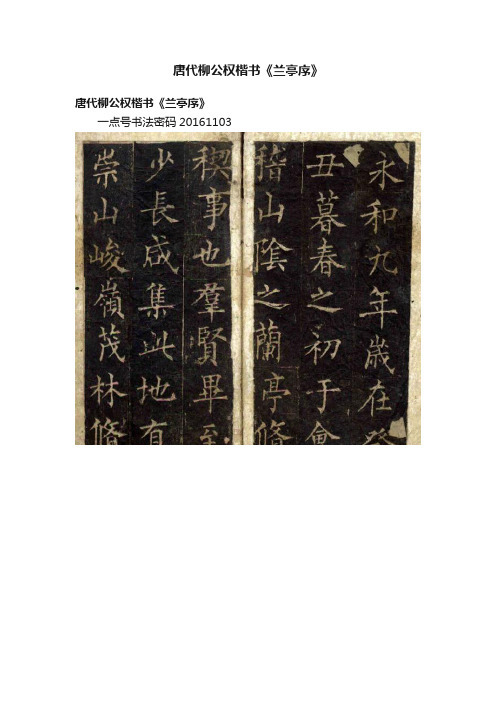 唐代柳公权楷书《兰亭序》
唐代柳公权楷书《兰亭序》
一点号书法密码20161103
永和九年歲在癸
丑暮春之初于會
稽山陰之蘭亭脩
稧事也羣賢畢至
少長咸集此地有
崇山峻嶺茂林脩